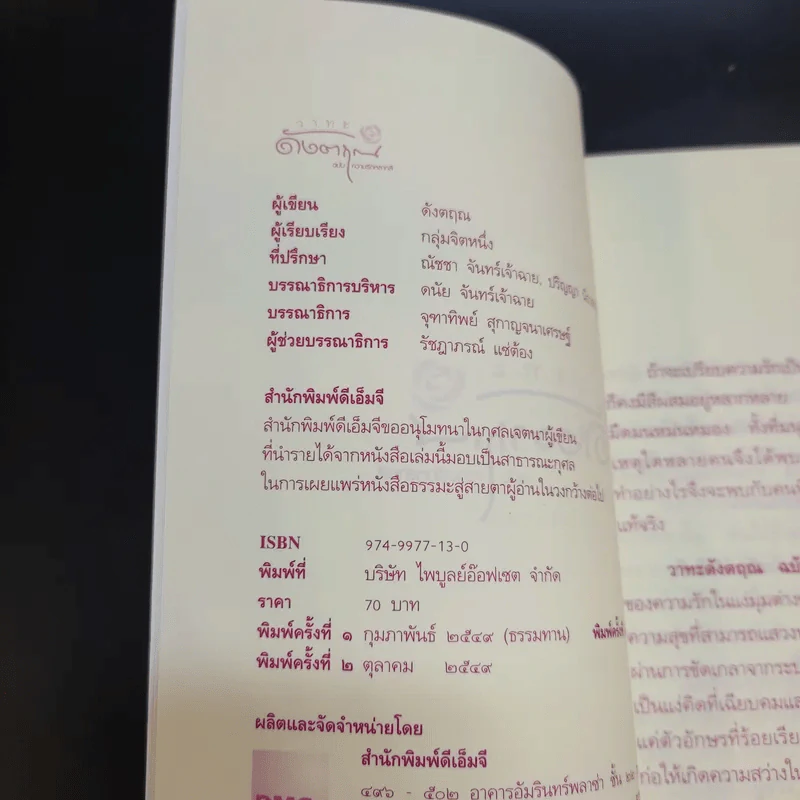 วาทะ
ดังตฤณ
ผู้เขียน ดังตฤณ
ผู้เรียบเรียง กลุ่มจิตหนึ่ง
ที่ปรึกษา ณัชชา จันทร์เจ้าฉาย, ปริญญา
บรรณาธิการบริหาร ดนัย จันทร์เจ้าฉาย
บรรณาธิการ จุฑาทิพย์ สุกาญจนาเศรษฐ์
ผู้ช่วยบรรณาธิการ รัชฎาภรณ์ แซ่ต้อง
สำนักพิมพ์ดีเอ็มจี
สำนักพิมพ์ดีเอ็มจีขออนุโมทนาในกุศลเจตนาผู้เขียน
ที่นำรายได้จากหนังสือเล่มนี้มอบเป็นสาธารณะกุศล
ในการเผยแพร่หนังสือธรรมะสู่สายตาผู้อ่านในวงกว้างต่อไป
ISBN 974-9977-13-0
พิมพ์ที่ บริษัท ไพบูลย์อ๊อฟเซต จำกัด
ราคา 70 บาท
พิมพ์ครั้งที่ ๑ กุมภาพันธ์ ๒๕๔๙ (ธรรมทาน) พิมพ์ครั้งที่
พิมพ์ครั้งที่ ๒ ตุลาคม ๒๕๔๙
ผลิตและจัดจำหน่ายโดย
สำนักพิมพ์ดีเอ็มจี
๔๙๖ - ๕๐๒ อาคารอัมรินทร์พลาซ่า ชั้น
DMG
ถ้าจะเปรียบความรักเป็น
ก็คงมีสีผสมอยู่หลากหลาย
มืดมนหม่นหมอง ทั้งที่มนุ
เหตุใดหลายคนจึงได้พบ
ทำอย่างไรจึงจะพบกับคน
แท้จริง
วาทะดังตฤณ ฉบั
ของความรักในแง่มุมต่าง
ความสุขที่สามารถแสวงห
ผ่านการขัดเกลาจากระบ
เป็นแง่คิดที่เฉียบคมแล
แต่ตัวอักษรที่ร้อยเรีย
ก่อให้เกิดความสว่างใน